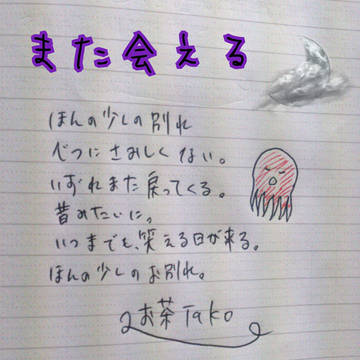 また会える
ほんの少しの別れ
べつにさみしくない。
いずれまた戻ってくる。
昔みたいに。
いつまでも、笑える日が来る。
ほんの少しのお別れ。
お茶Tako